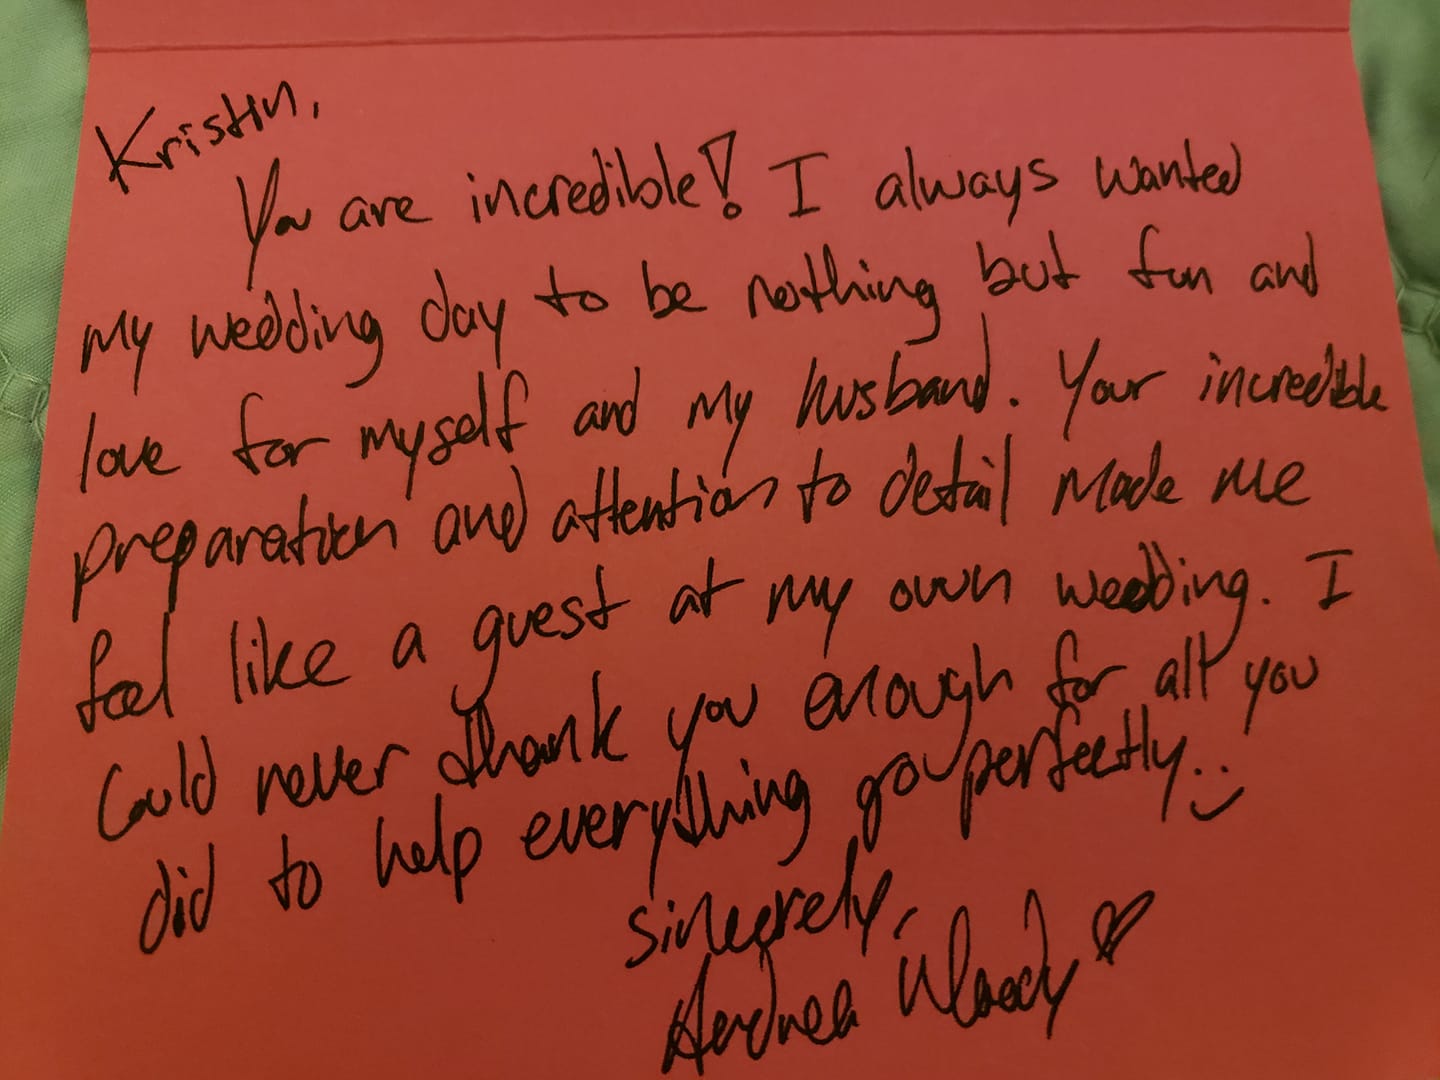 Kristin,
You are incredible! I always wanted
my wedding day to be nothing but fun and
love for myself and my husband. Your incredible
preparation and attention to detail made me
feel like a guest at my own wedding. I
could never thank you enough for all you
did to help everything go perfectly.
Sincerely,
Andrea Woody